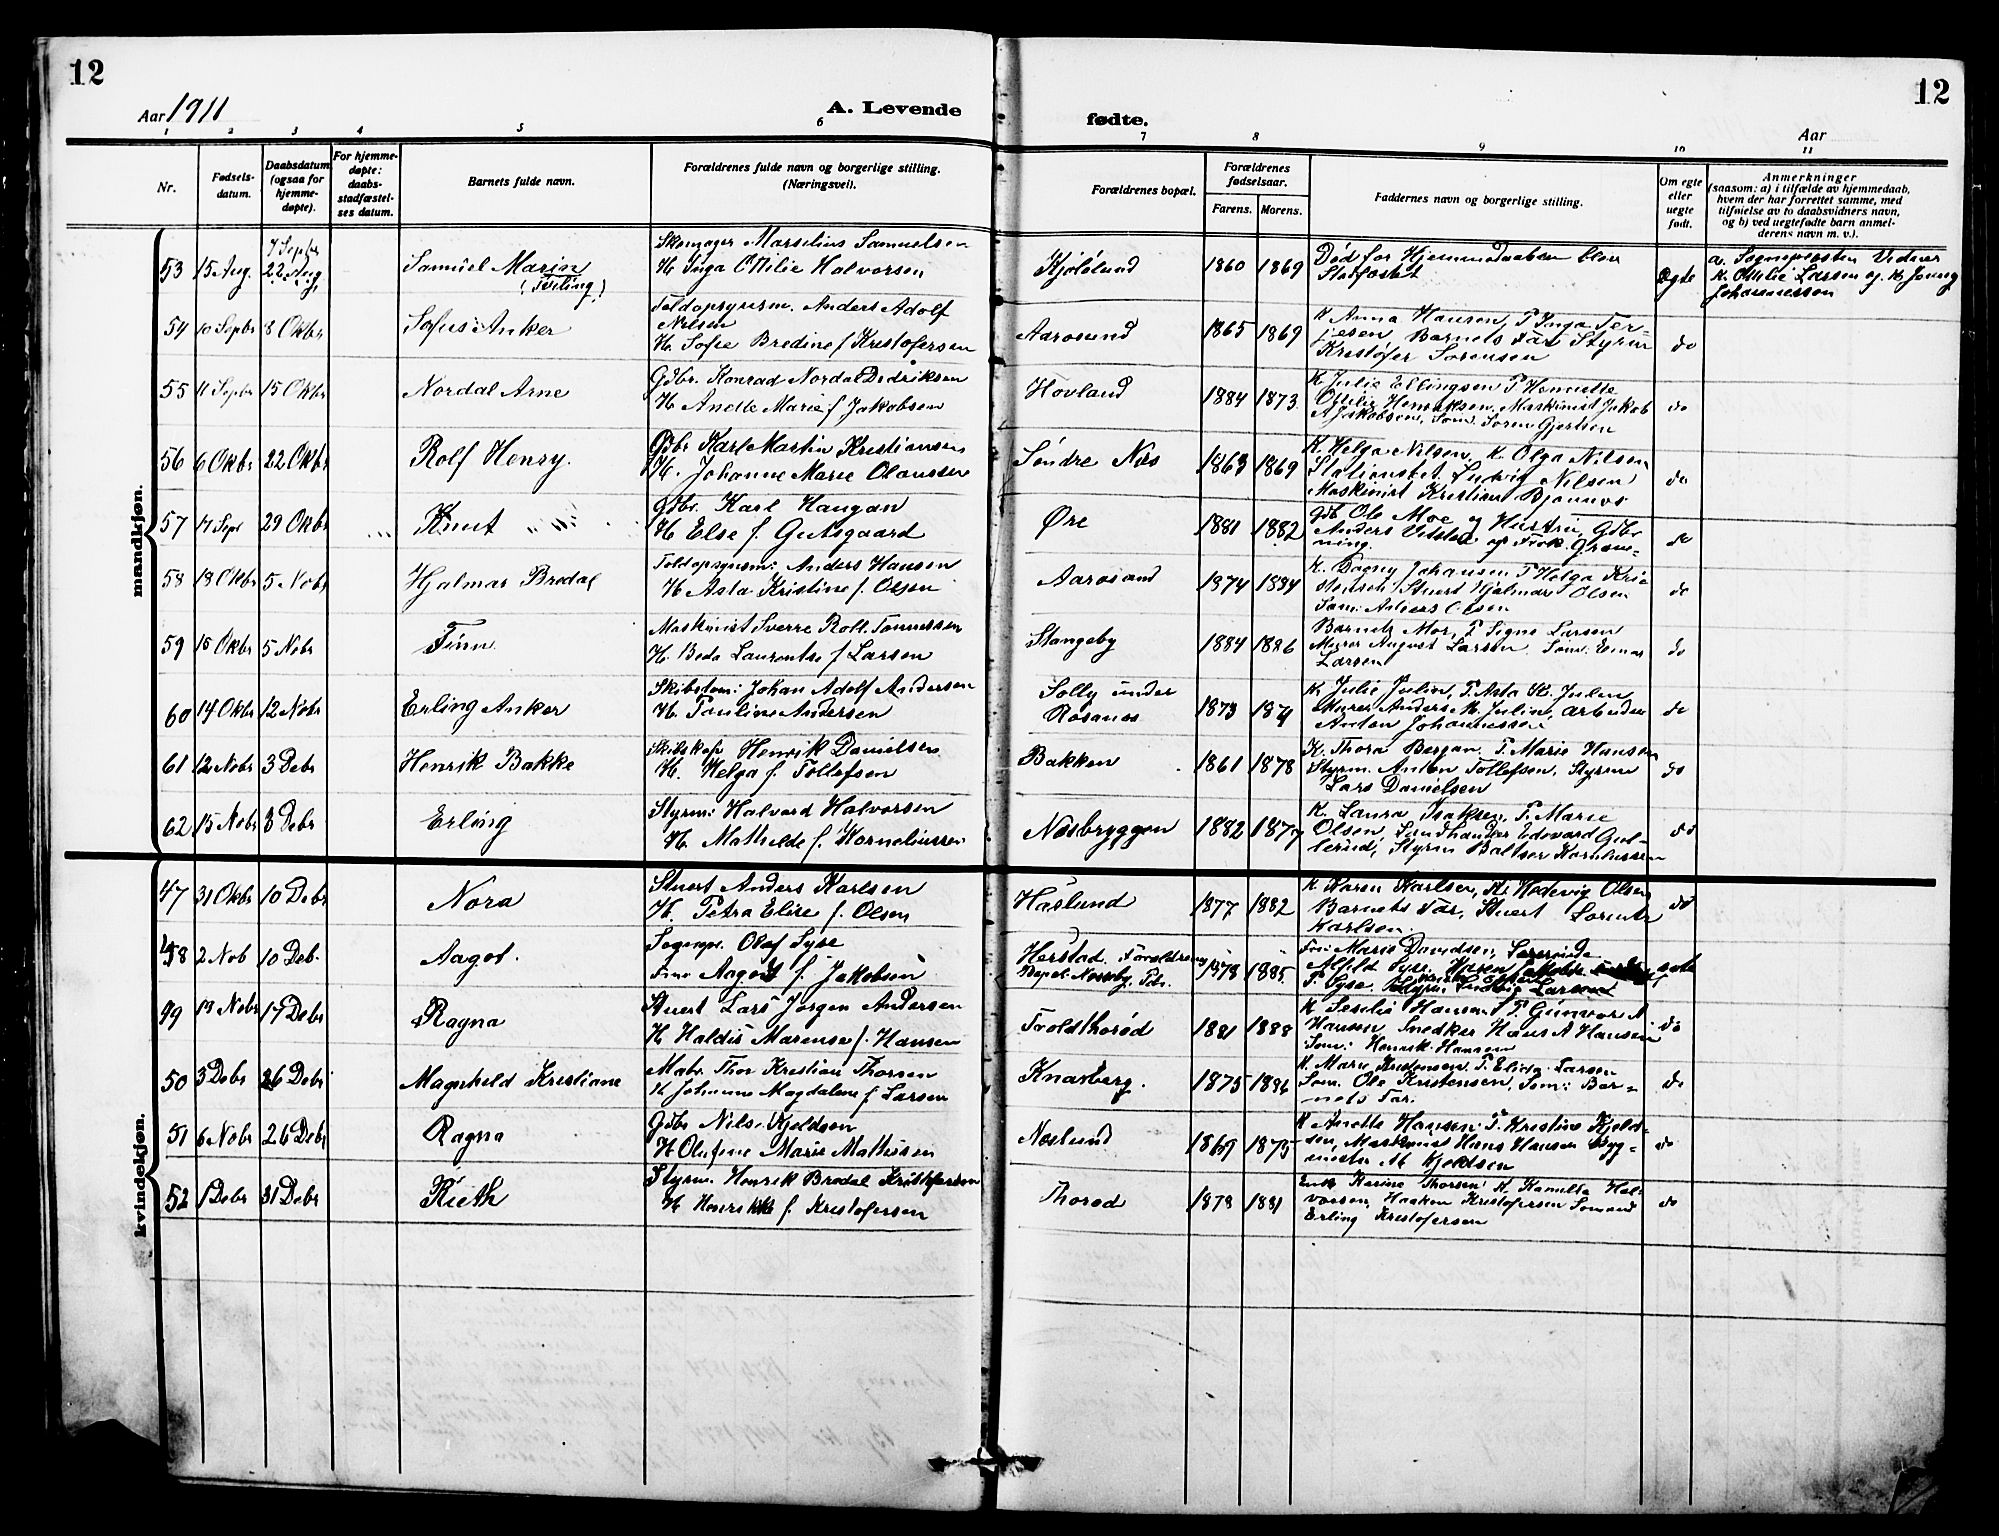 12
12
Aar 1911
A. Levende
fødte.
Aar
1 2 3 4 5 6 7 8 9 10 11
Nr.
Fødsels-
datum.
Daabsdatum
(ogsaa for
hjemme-
døpte).
For hjemme-
døpte:
daabs-
stadfæstel-
ses datum.
Barnets fulde navn.
Forældrenes fulde navn og borgerlige stilling.
(Næringsvei).
Forældrenes bopæl.
Forældrenes
fødselsaar.
Farens. Morens.
Faddernes navn og borgerlige stilling.
Om egte
eller
uegte
født.
Anmerkninger
(saasom: a) i tilfælde av hjemmedaab,
hvem der har forrettet samme, med
tilføielse av to daabsvidners navn,
og b) ved uegtefødte barn anmel-
derens navn m. v.).
mandkjøn.
53 15 Aug. 7 Septbr 22 Aug. Samuel Marin (Tvilling)
Skomager Marselius Samuelsen
H. Inga Otilie Halvorsen
Kjølelund 1860 1869
Død før Hjemmedaaben blev
Stadfæstet
Ægte
a. Sognepresten Vidner
K. Ottilie Larsen og K. Jenny
Johannessen
54 10 Septbr 8 Oktbr Sofus Anker
Toldopsynsm. Anders Adolf
Nilsen
H. Sofie Bredine f. Kristofersen
Aarøsund 1865 1869
K. Anna Hansen, P. Inga Ter-
jesen Barnets Far Styrm
Kristofer Sørensen
do
55 11 Septbr 15 Oktbr Nordal Arne
Gdbr. Konrad Nordal Dedriksen
H. Anette Marie f. Jakobsen
Hovland 1884 1873
K. Julie Ellingsen P. Henriette
Otilie Henriksen, Maskinist Jakob
A. Jakobsen, Søm. Søren Gjertsen
do
56 6 Okbr 22 Okbr Rolf Henry.
Gdbr Karl Martin Kristiansen
H. Johanne Marie Olaussen
Søndre Næs 1863 1869
K. Helga Nilsen, K. Olga Nilsen
Ludvig Nilsen
Maskinist Kristian Bjønnes
do
57 17 Sept 29 Okbr Knut
Gdbr. Karl Haugan
H Else f. Gutsgaard
Øre 1881 1882
Gdb Ole Moe og Hustru, Gdbr
Anders og Frøk. Grøn-
ning.
do
58 18 Okbr 5 Nobr Hjalmar Bredal
Toldopsynsm: Anders Hansen
H. Asta Kristine f. Olsen
Aarøsund 1874 1884
K. Dagny Johansen P Helga Kris
tensen, Stuert Hjalmar Olsen
Søm: Anders Olsen
do
59 15 Okbr 5 Nobr Finn
Maskinist Sverre Rolf Tønnessen
H. Beda Laurentse f Larsen
Stangeby 1884 1886
Barnets Mor, P Signe Larsen
Murer August Larsen. Søm. Einar
Larsen
do
60 14 Okbr 12 Nobr Erling Anker
Skibstøm: Johan Adolf Andersen
H. Pauline Andersen
Solly under
Rosanes 1873 1871
K. Julie Julin, P. Asta K. Julin
Murer Anders M. Julin, Arbeider
Anton Johannessen
do
61 12 Nobr 3 Debr Henrik Bakke
Skibskap Henrik Danielsen
H. Helga f. Tollefsen
Bakken 1861 1878
K. Thora Bergan P. Marie Hansen
Styrm. Anton Tollefsen, Styrm
Lars Danielsen
do
62 15 Nobr 3 Debr Erling
Styrm: Halvard Halvorsen
H. Mathilde f. Korneliussen
Næsbryggen 1882 1877
K. Laura Isaksen, P. Marie
Olsen, Landhandler Edevard Gul-
lerud, Styrm Baltser Korneliussen
do
kvindekjøn.
47 31 Okbr 10 Debr Nora
Stuert Anders Karlsen
H. Petra Elise f. Olsen
Haslund 1877 1882
K Karen Karlsen, K. Hedevig Olsen
Barnets Far, Stuert Lorents
Karlsen.
do
48 2 Nob 10 Deb. Aagot
Sognepr. Olaf Syse
Frue Aagot f. Jakobsen
Herstad. Forældrenes
Bopæl Nesseby, Pds. 1878 1885.
Fru Marie Davidsen, Lærerinde
Alfild Syse,
P. Syse, Larsen
egte
49 19 Nobr 17 Debr Ragna
Stuert Lars Jørgen Andersen
H Haldis Marense f. Hansen
Tvoldthorød 1881 1888
K Seselie Hansen P. Gunvor A
Hansen, Snedker Hans A Hansen
Søm: Henrik Hansen
do
50 3 Debr 26 Debr Magnhild Kristiane
Mabr. Thor Kristian Thorsen
H Johanne Magdalene f Larsen
Knarberg. 1875 1886
K. Marie Kristensen P. Elida Larsen
Søm. Ole Kristensen, Søm: Bar-
nets Far.
do
51 6 Nobr 26 Debr Ragna
Gdbr Nils Kjeldsen
H Olufine Marie Mathisen
Næslund 1869 1875
K Anette Hansen P. Kristine Kjeld-
sen, Maskinist Hans Hansen Byg-
mester M Kjeldsen
do
52 1 Debr 31 Debr Ruth
Styrm. Henrik Bredal Kristofersen
H Henrikke f. Kristofersen
Thorød 1878 1881
Enke Karine Thorsen K. Kamilla Hal-
vorsen, Haaken Kristofersen Sømand
Erling Kristofersen
do